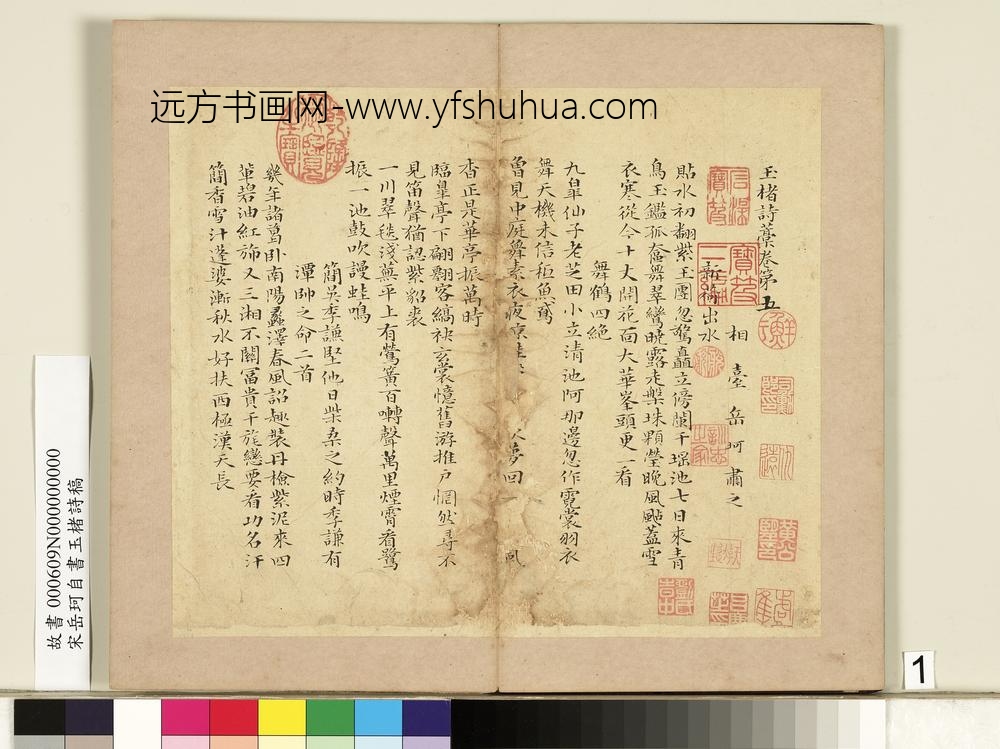 远方书画网-www.yfshuhua.com
玉楮詩藁卷第五
相臺岳珂肅之
新荷出水
貼水初翻紫玉團忽驚矗立傍闌干瑶池七日來青
鳥玉鑑孤奩舞翠鸞曉露走槃珠顆瑩晚風颭蓋雪
衣寒從今十丈開花面大華峯頭更一看
舞鶴四絶
九皐仙子老芝田小立清池阿那邊忽作霓裳羽衣
舞天機未信在魚鳶
曾見中庭舞素衣夜涼 夢回一 風
杳正是華亭振萬時
臨皐亭下翩翾客縞袂玄裳憶舊游推戶惘然尋不
見笛聲猶認紫貂裘
一川翠毯淺蕪平上有鶯簧百囀聲萬里煙霄看鷺
振一池鼓吹謾蛙鳴
簡吳季謙堅他日柴桑之約時季謙有
潭帥之命二首
幾年諸葛卧南陽蠡澤春風詔趣裝丹檢紫泥來四
葦碧油紅旆又三湘不關富貴干旄戀要看功名汗
簡香雪汁蓬婆漸秋水好扶西極漢天長
乾隆御覽之寶
故書000609N000000000
宋岳珂自書玉楮詩稿
1